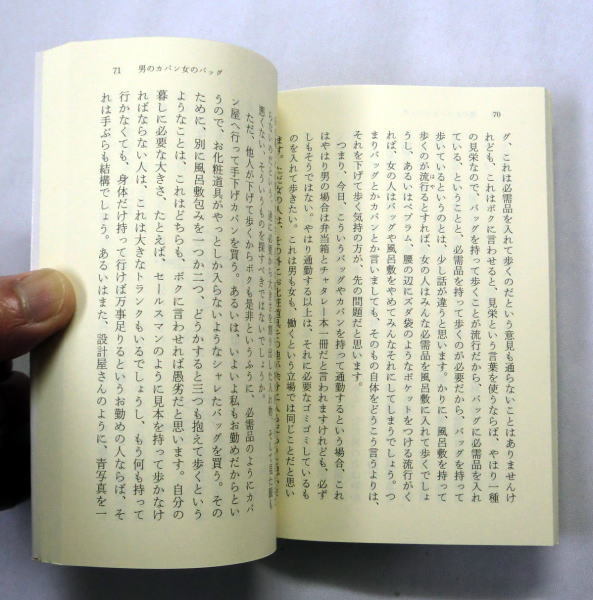 70
グ、これは必需品を入れて歩くのだという意見も通らないことはありませんけ
れども、これはボクに言わせると、見栄という言葉を使うならば、やはり一種
の見栄なので、バッグを持って歩くことが流行だから、バッグに必需品を入れ
ている、ということと、必需品を持って歩くのが必要だから、バッグを持って
歩いているというのとは、少し話が違うと思います。かりに、風呂敷を持って
歩くのが流行るとすれば、女の人はみんな必需品を風呂敷に入れて歩くでしょ
うし、あるいはペプラム、腰の辺にズダ袋のようなポケットをつける流行がく
れば、女の人はバッグや風呂敷をやめてみんなそれにしてしまうでしょう。つ
まりバッグとかカバンとか言いましても、そのもの自体をどうこう言うよりは、
それを下げて歩く気持の方が、先の問題だと思います。
つまり、今日、こういうバッグやカバンを持って通勤するという場合、これ
はやはり男の場合は弁当箱とチャタレー本一冊だと言われますけれども、必ず
しもそうではない。やはり通勤する以上は、それに必要なゴミゴミしているも
のを入れて歩きたい。これは男も女も、働くという立場では同じことだと思い
ます。ただ女の人は、その外にお化粧道具
71 男のカバン女のバッグ
悪くない、そういうものを探すべきではないでしょうか。
ただ、他人が下げて歩くからボクも是非というふうに、必需品のようにカバ
ン屋へ行って手下げカバンを買う。あるいは、いよいよ私もお勤めだからとい
うので、お化粧道具がやっとしか入らないようなシャレたバッグを買う。その
ために、別に風呂敷包みを一つか二つ、どうかすると三つも抱えて歩くという
ようなことは、これはどちらも、ボクに言わせれば愚劣だと思います。自分の
暮しに必要な大きさ、たとえば、セールスマンのように見本を持って歩かなけ
ればならない人は、これは大きなトランクもいるでしょうし、もう何も持って
行かなくても、身体だけ持って行けば万事足りるというお勤めの人ならば、そ
れは手ぶらも結構でしょう。あるいはまた、設計屋さんのように、青写真を一